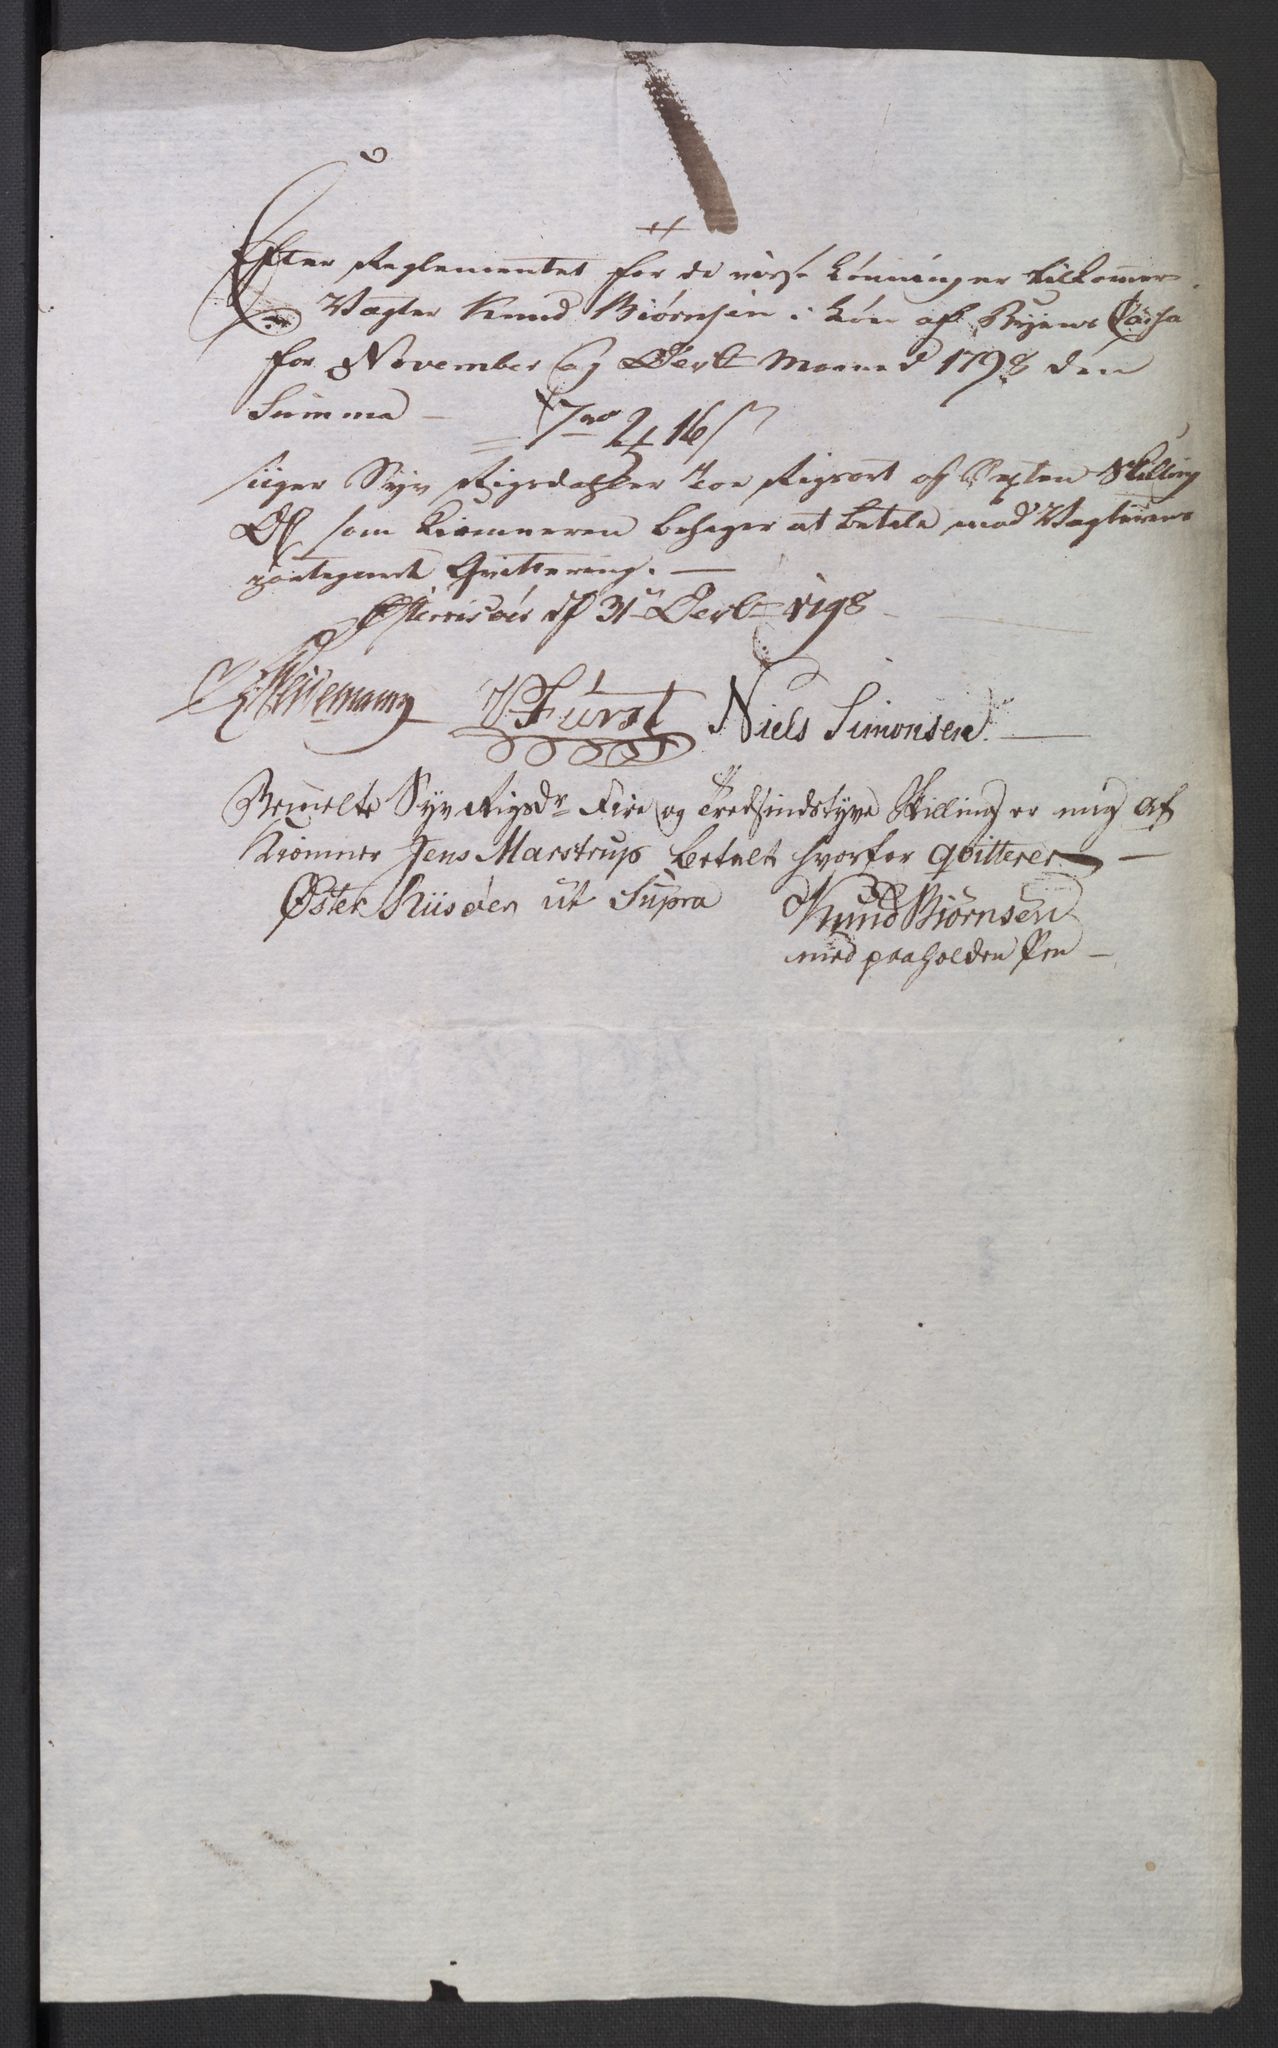 Efter Reglementet for de visse Lønninger tilkommer
Vægter Knud Biørnsen i Løn af Byens Cassa
for November og Decbr Maaned 1798 den
Summa — 7 rd 2 # 16 s
siger Syv Rigsdahler Toe Rigsort og Sexten Skilling
som Kiemneren behager at betale mod Vægterens
Qvittering. —
Østerrisöer d 31 Decbr 1798
J. Fürst Niels Simonsen
Bemelte Syv Rigsdr Fire og Tredsindstyve Skilling er mig af
Kiemner Jens Marstrup betalt hvorfor qvitteres —
Øster Riisøer ut Supra Knud Biørnsen
med paaholden Pen —